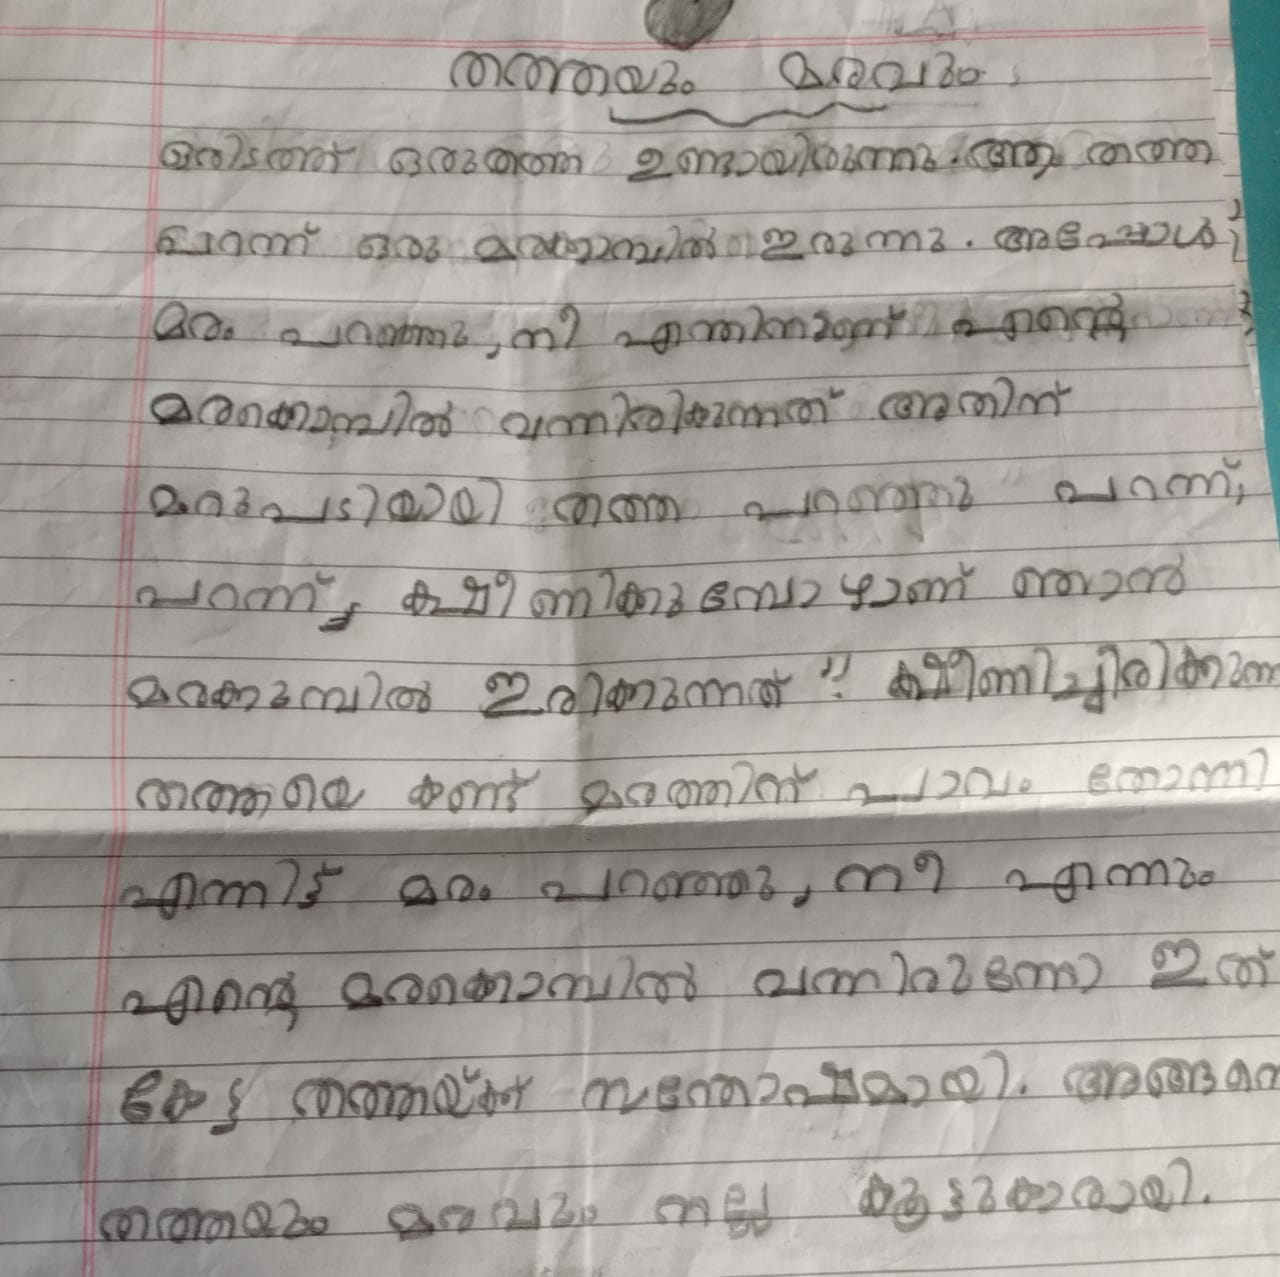 തത്തയും മരവും.
ഒരിടത്ത് ഒരു തത്ത ഉണ്ടായിരുന്നു. ആ തത്ത
പറന്ന് ഒരു മരക്കൊമ്പിൽ ഇരുന്നു. അപ്പോൾ
മരം പറഞ്ഞു, നീ എന്തിനാണ് എന്റെ
മരക്കൊമ്പിൽ വന്നിരിക്കുന്നത് അതിന്
മറുപടിയായി തത്ത പറഞ്ഞു പറന്ന്,
പറന്ന്, ക്ഷീണിക്കുമ്പോഴാണ് ഞാൻ
മരക്കൊമ്പിൽ ഇരിക്കുന്നത്" ക്ഷീണിച്ചിരിക്കുന്ന
തത്തയെ കണ്ട് മരത്തിന് പാവം തോന്നി
എന്നിട്ട് മരം പറഞ്ഞു, നീ എന്നും
എന്റെ മരക്കൊമ്പിൽ വന്നിരുന്നോ ഇത്
കേട്ട തത്തയ്ക്ക് സന്തോഷമായി. അങ്ങനെ
തത്തയും മരവും നല്ല കൂട്ടുകാരായി.